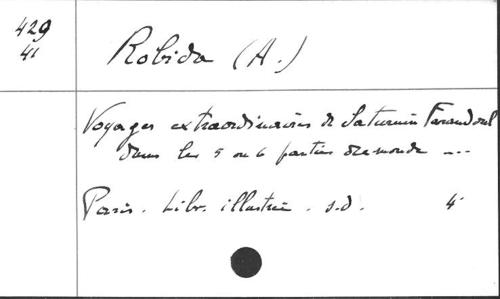 429
41
Robida (A.)
Voyages extraordinaires de Saturnin Farandoul
dans les 5 ou 6 parties du monde ...
Paris. Libr. illustrée. s.d. 4°